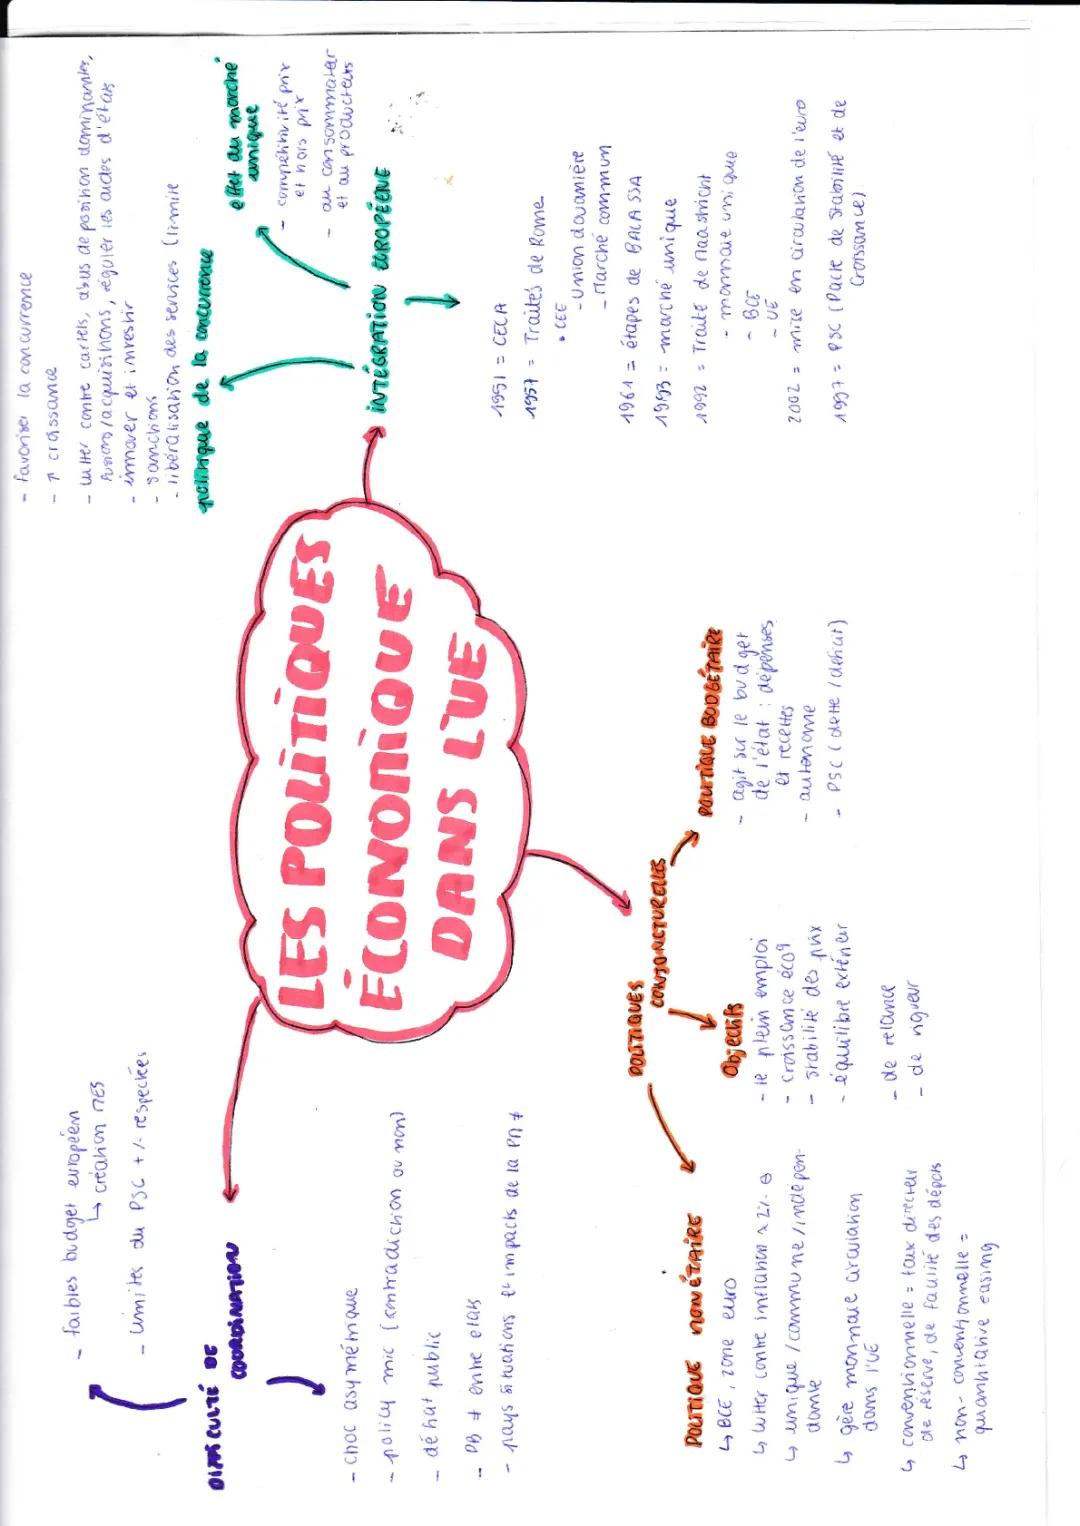 LES POLITIQUES
ÉCONOMIQUE
DANS L'UE
INTÉGRATION EUROPÉENE
politique de la concurrence
- favoriser la concurrence
- ↑ croissance
- lutter contre cartels, abus de position dominantes,
fusions/acquisitions, réguler les aides d'états
- innover et investir
- sanctions
- libéralisation des services (limite
effet du marché
unique
- compétitivité prix
et hors prix
- au consommateur
et au producteurs
1951 = CECA
1957 = Traités de Rome
• CEE
- Union douanière
- Marché commun
1961 = étapes de BALASSA
1993 = marché unique
1992 = Traité de Maastricht
- monnaie unique
- BCE
- UE
2002 = mise en circulation de l'euro
1997 = PSC (Pacte de Stabilité et de
Croissance)
POLITIQUES
CONJONCTURELLES
POLITIQUE BUDGÉTAIRE
- agit sur le budget
de l'état : dépenses
et recettes
- autonome
- PSC (dette / déficit)
Objectifs
- le plein emploi
- croissance éco
- stabilité des prix
- équilibre extérieur
- de relance
- de rigueur
POLITIQUE MONÉTAIRE
↳ BCE, zone euro
↳ lutter contre inflation ≈ 2%
↳ unique / commune / indépen-
dante
↳ gère monnaie circulation
dans l'UE
↳ conventionnelle = taux directeur
de réserve, de facilité des dépôts
↳ non-conventionnelle =
quantitative easing
DIFFICULTÉ DE
COORDINATION
- faibles budget européen
↳ création MES
- limites du PSC +/- respectées
- choc asymétrique
- policy mic (contradiction ou non)
- début public
- PB ≠ entre etats
- pays situations et impacts de la PM ≠